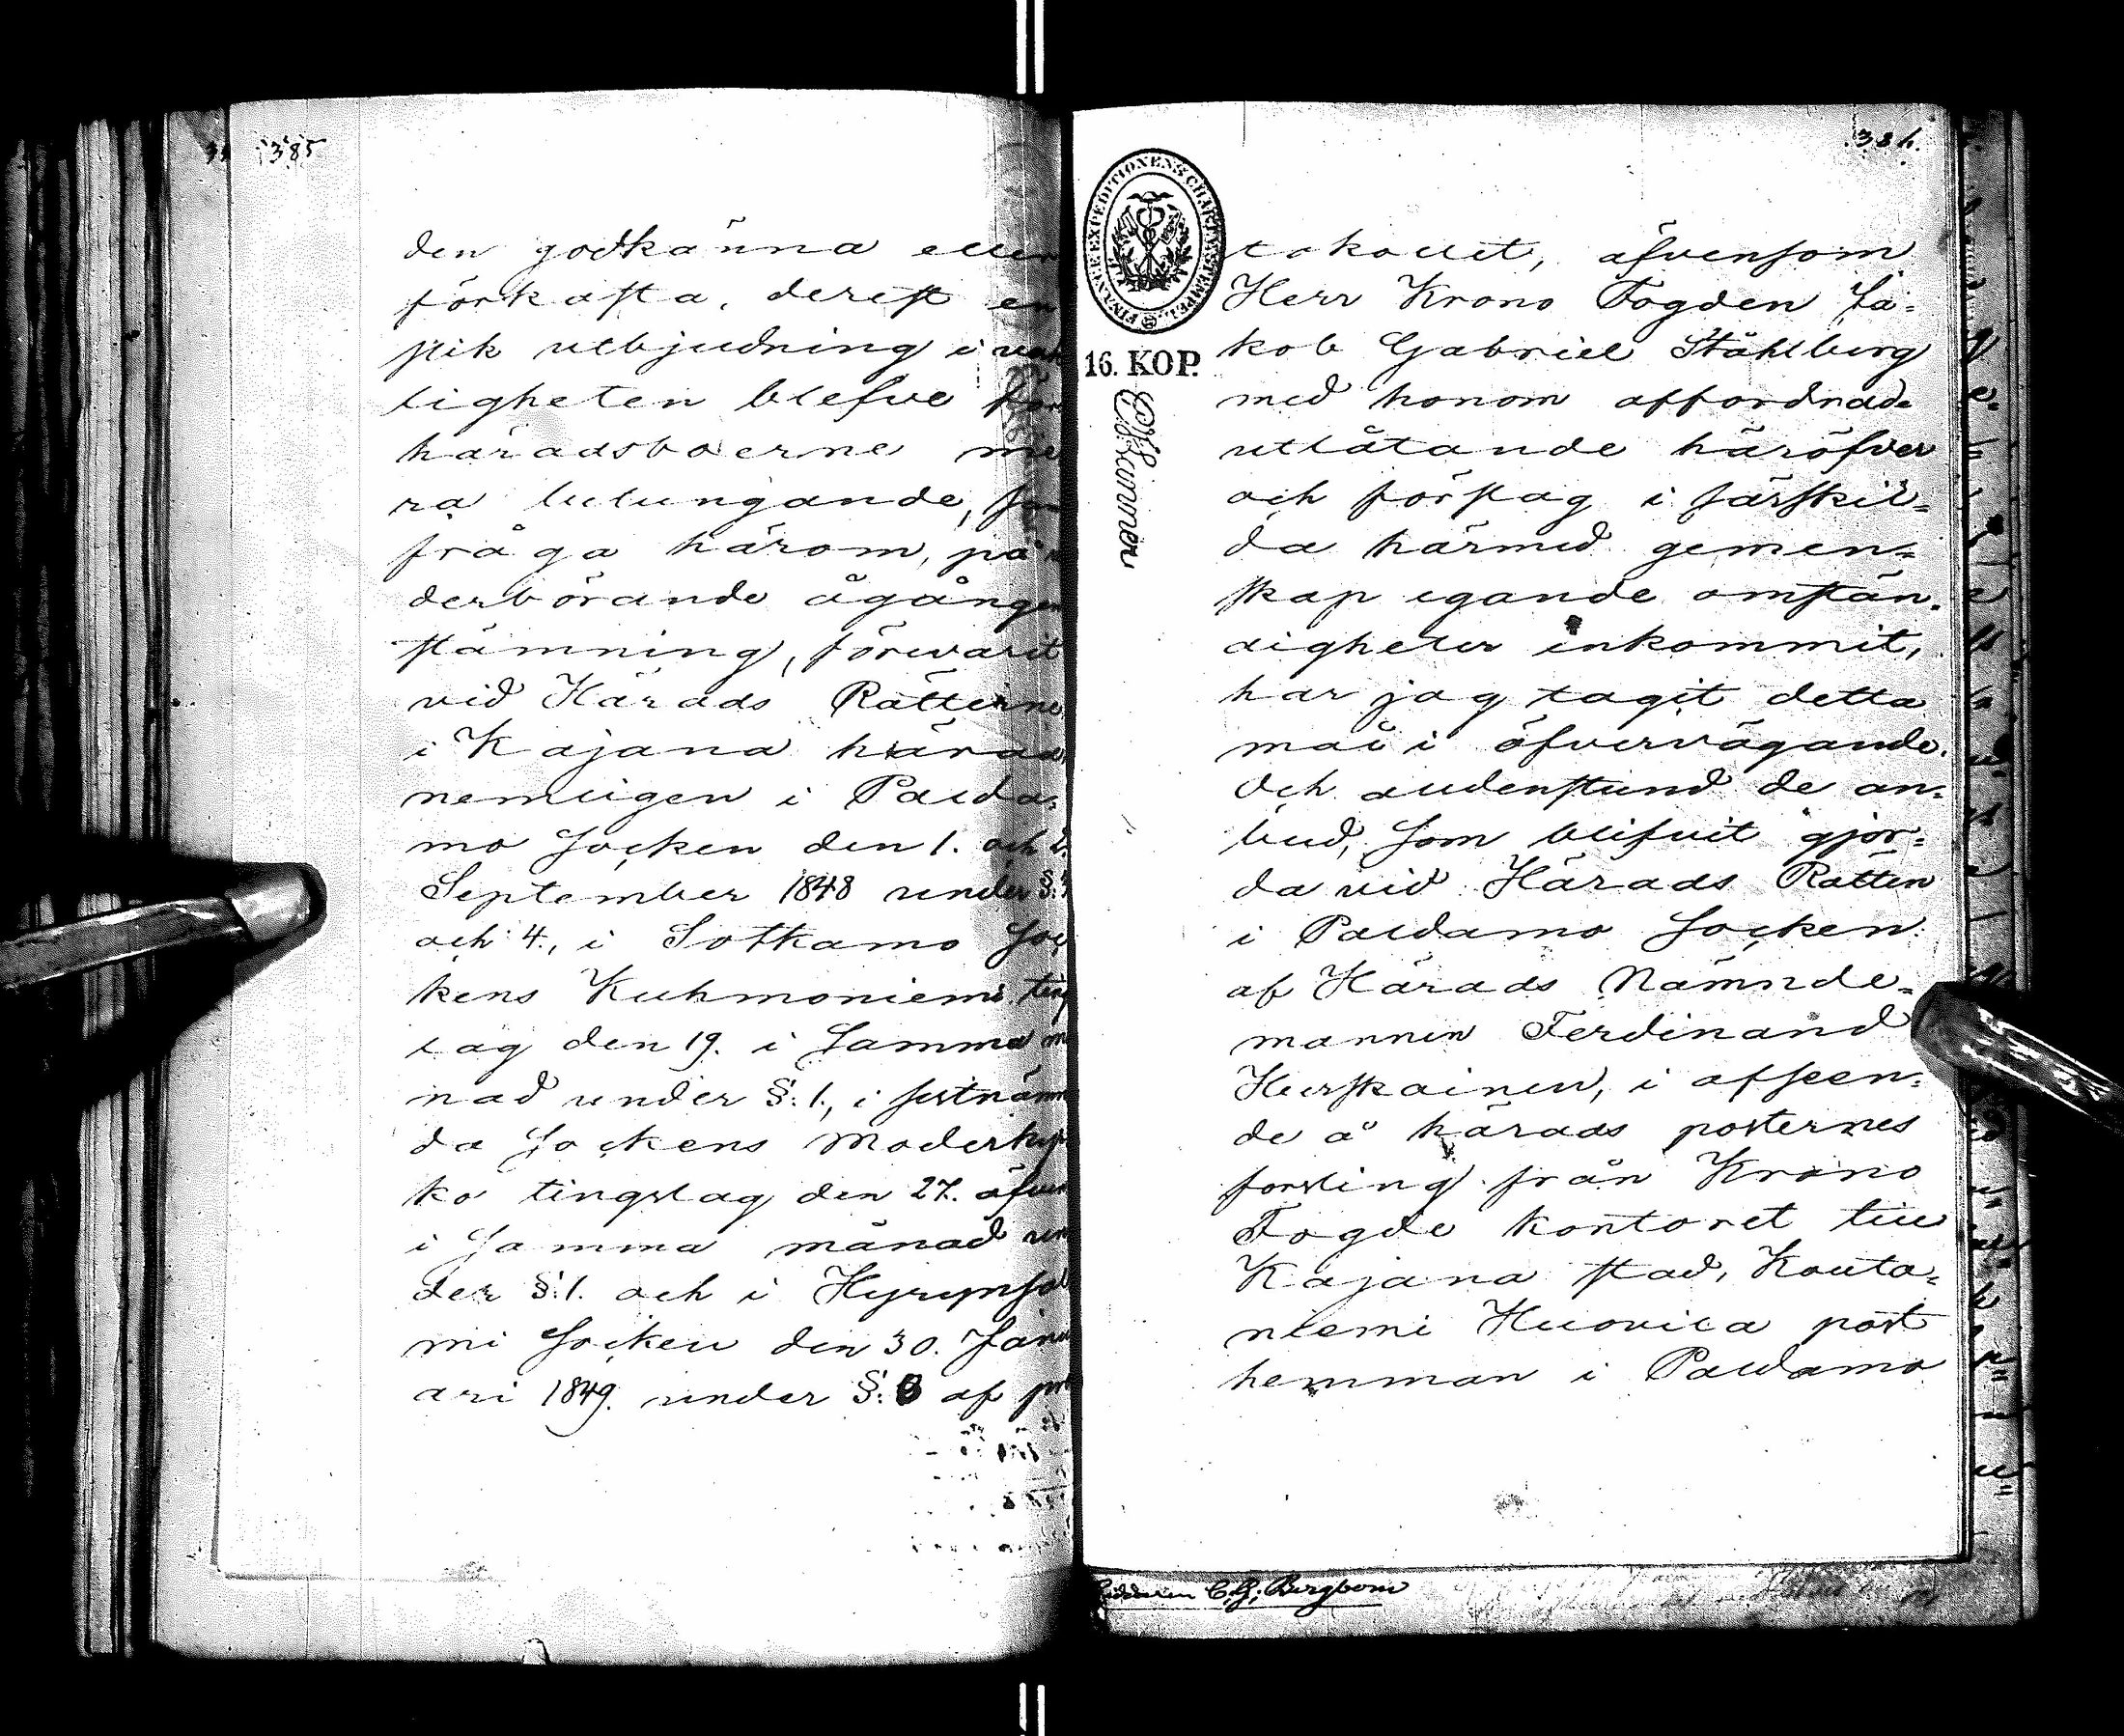 385
den godkänna eller
förkasta, derest en
slik utbjudning i
ligheten blefve för
häradsboerne me
ra betungande, 
fråga härom, på
derbörande ågången
stämning, förevarit
vid Härads Rätterne
i Kajana härad,
nemligen i Palda=
mo Socken den 1. och 2.
September 1848 under §:
och 4., i Sotkamo Soc
kens Kuhmoniemi ting
lag den 19. i samma må
nad under §: 1., i sistnämn
da Sockens Moderkyr
ko tingslag den 27. äfven
i samma månad un
der §: 1. och i Hyrynsal
mi Socken den 30. Janu
ari 1849. under §: 8 af pro
386.
FINANCE EXPEDITIONENS CHARTÆ STEMPEL
16. KOP.
tokollet, äfvensom
Herr Krono Fogden Ja=
kob Gabriel Ståhlberg
med honom affordrade
utlåtande häröfver
och förslag i särskil=
da härmed gemen=
skap egande omstän=
digheter inkommit,
har jag tagit detta
mål i öfvervägande.
Och alldenstund de an=
bud, som blifvit gjor=
da vid Härads Rätten
i Paldamo Socken
af Härads Nämnde=
mannen Ferdinand
Hurskainen, i afseen=
de å härads posternes
forsling från Krono
Fogde kontoret till
Kajana stad, Kouta=
niemi Huovila post
hemman i Paldamo
C. G. Bergbom